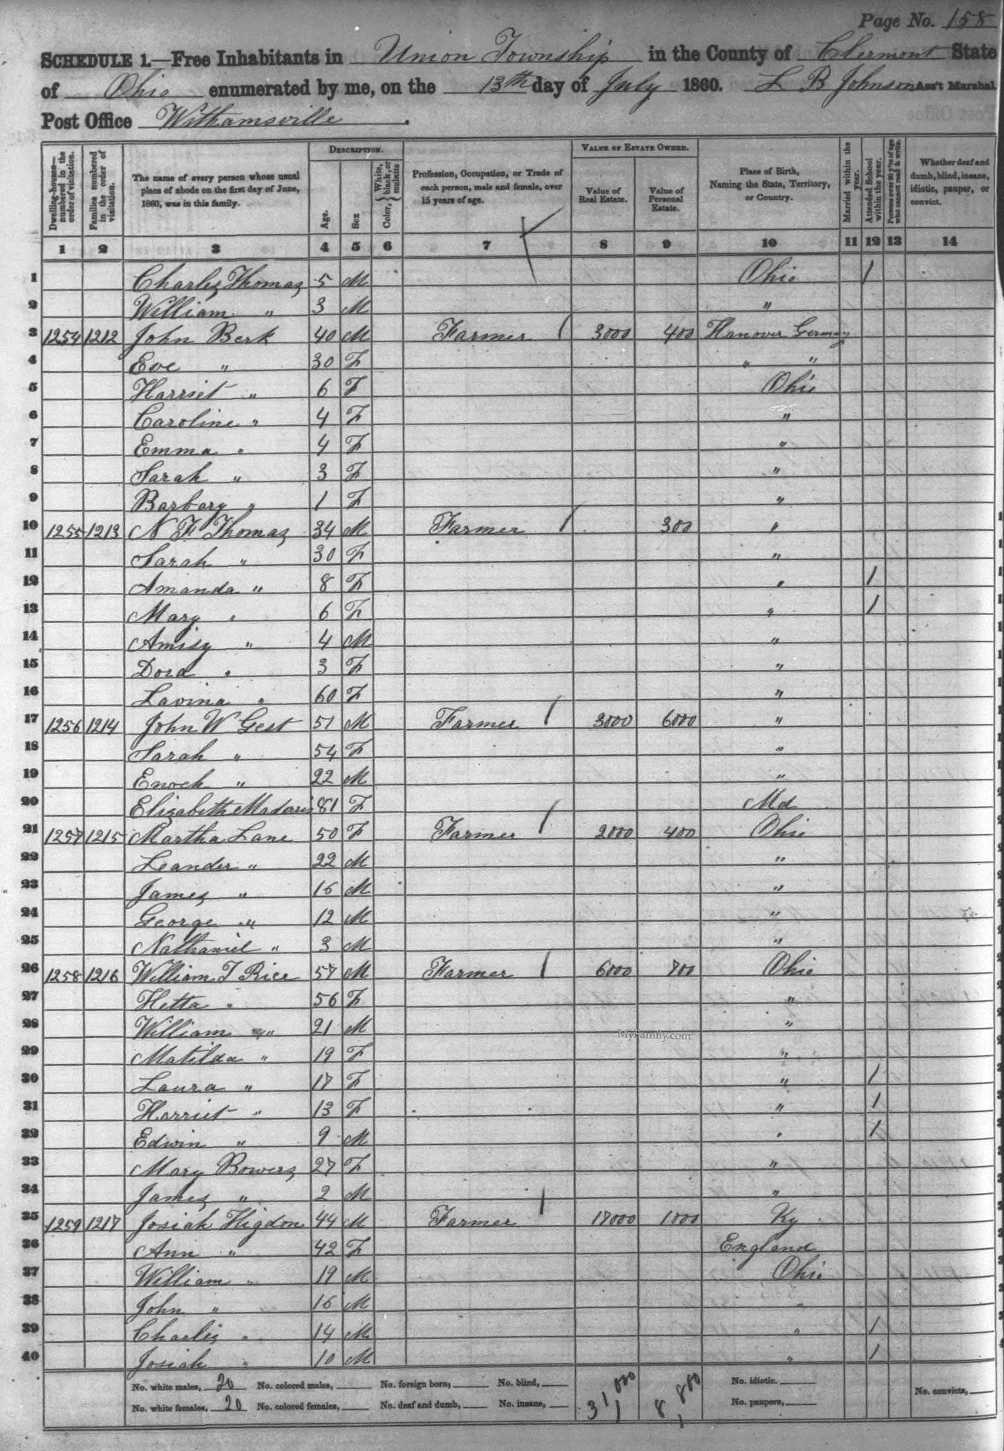 Page No. 158
SCHEDULE 1.—Free Inhabitants in Union Township in the County of Clermont State
of Ohio enumerated by me, on the 13th day of July 1860. L B Johnson Ass't Marshal.
Post Office Withamsville.
Dwelling-houses—numbered in the order of visitation. Families numbered in the order of visitation. The name of every person whose usual place of abode on the first day of June, 1860, was in this family. DESCRIPTION. Age. Sex Color, White, black, or mulatto Profession, Occupation, or Trade of each person, male and female, over 15 years of age. VALUE OF ESTATE OWNED. Value of Real Estate. Value of Personal Estate. Place of Birth, Naming the State, Territory, or Country. Married within the year. Attended School within the year. Persons over 20 y'rs of age who cannot read & write. Whether deaf and dumb, blind, insane, idiotic, pauper, or convict.
1 2 3 4 5 6 7 8 9 10 11 12 13 14
1 Charles Thomas 5 M Ohio 1
2 William " 3 M "
3 1254 1212 John Berk 40 M Farmer / 3000 400 Hanover Germany
4 Eve " 30 F " "
5 Harriet " 6 F Ohio
6 Caroline " 4 F "
7 Emma " 4 F "
8 Sarah " 3 F "
9 Barbary " 1 F "
10 1255 1213 N F Thomas 34 M Farmer / 300 "
11 Sarah " 30 F "
12 Amanda " 8 F " 1
13 Mary " 6 F " 1
14 " 4 M "
15 Dora " 3 F "
16 Lavina " 60 F "
17 1256 1214 John W Gest 51 M Farmer / 3000 6000 "
18 Sarah " 54 F "
19 Enoch " 22 M "
20 Elizabeth 81 F Md
21 1257 1215 Martha Lane 50 F Farmer / 2000 400 Ohio
22 Leander " 22 M "
23 James " 15 M "
24 George " 12 M "
25 Nathaniel " 3 M "
26 1258 1216 William T Rice 57 M Farmer / 6000 700 Ohio
27 Hetta " 56 F "
28 William " 21 M "
29 Matilda " 19 F "
30 Laura " 17 F " 1
31 Harriet " 13 F " 1
32 Edwin " 9 M " 1
33 Mary Bowers 27 F "
34 James " 2 M "
35 1259 1217 Josiah Higdon 44 M Farmer / 17000 1000 Ky
36 Ann " 42 F England
37 William " 19 M Ohio
38 John " 16 M "
39 Charles " 14 M " 1
40 Josiah " 10 M " 1
No. white males, 20 No. colored males, No. foreign born, No. blind, 31,000 8,800 No. idiotic.
No. white females, 20 No. colored females, No. deaf and dumb, No. insane, No. paupers, No. convicts,
MyFamily.com